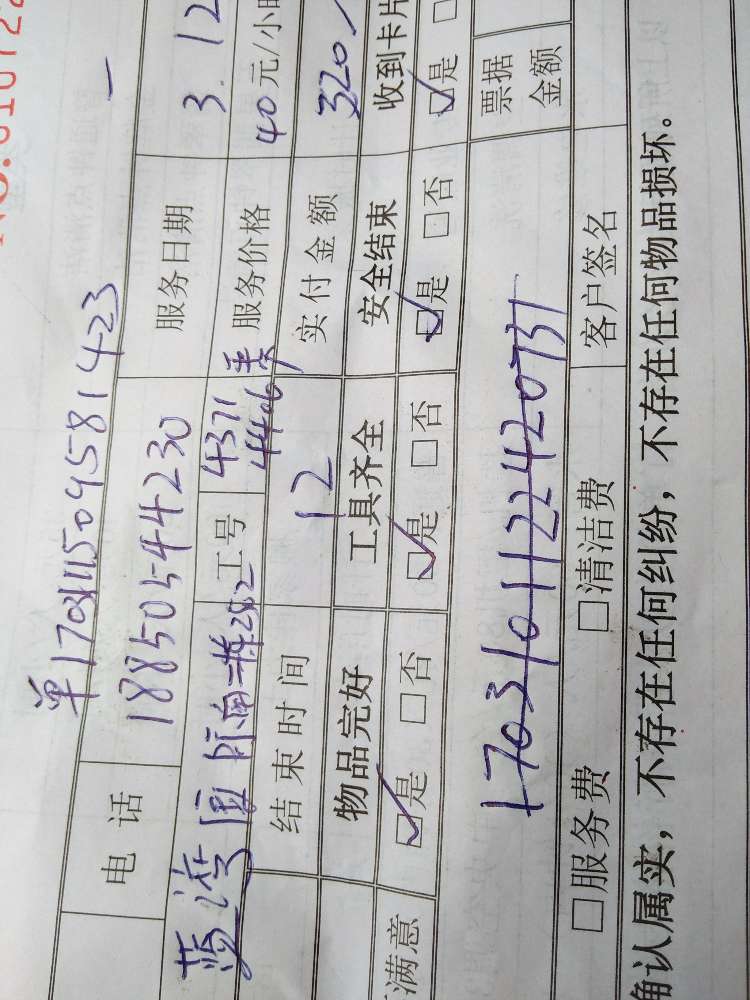 单1703115094581423
电话 18850544230 服务日期 3.12
蓝湾国际 工号 4371 4406 服务价格 40元/小时
结束时间 12 实付金额 320
满意 物品完好 工具齐全 安全结束 收到卡片
☑是 □否 ☑是 □否 ☑是 □否 ☑是
17031011224420737 票据金额
□服务费 □清洁费 客户签名
确认属实，不存在任何纠纷，不存在任何物品损坏。